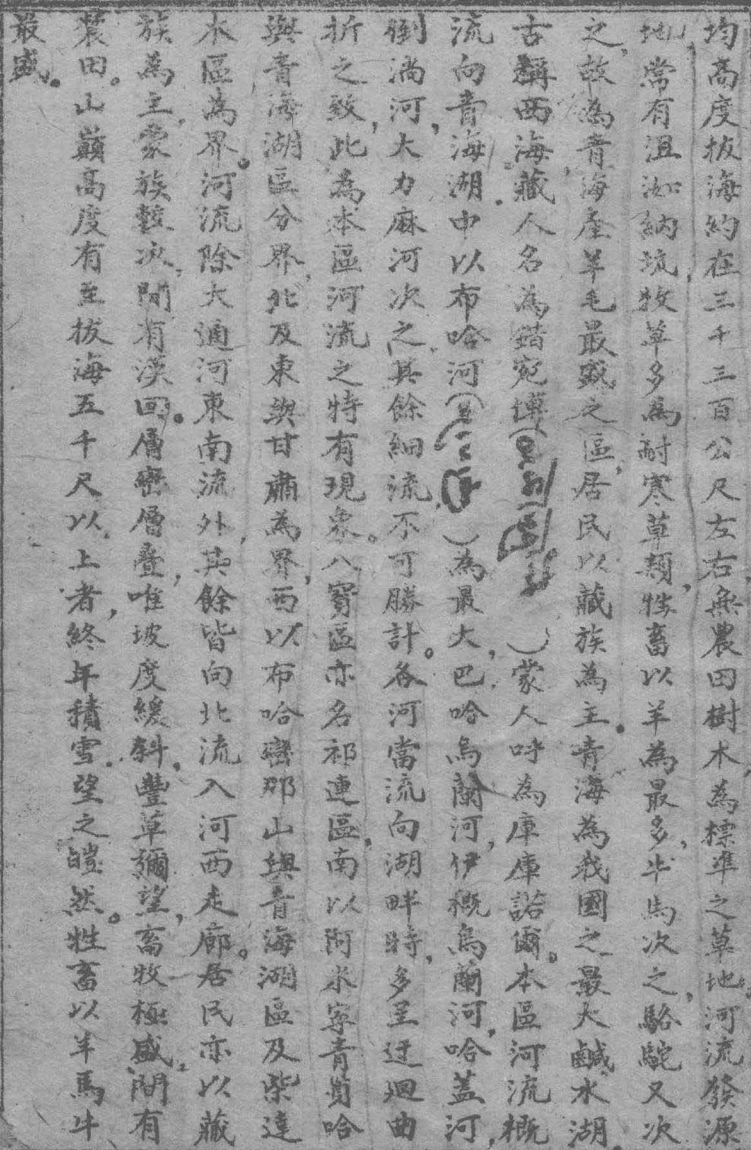 均高度拔海約在三千三百公尺左右無農田樹木為標準之草地河流發源
地,常有溫泇納坑,牧草多為耐寒草類,牲畜以羊為最多,牛馬次之,駱駝又次
之,故為青海產羊毛最盛之區,居民以藏族為主。青海為我國之最大鹹水湖,
古稱西海,藏人名為錯宛博()蒙人呼為庫庫諾爾。本區河流概
流向青海湖.中以布哈河()為最大,巴哈烏蘭河,伊概烏蘭河,哈蓋河,
倒淌河,大力麻河次之,其餘細流,不可勝計。各河當流向湖畔時,多呈迂迴曲
折之致,此為本區河流之特有現象。八寶區亦名祁連區,南以阿米寧青員哈
與青海湖區分界,北及東與甘肅為界,西以布哈巒那山與青海湖區及柴達
木區為界。河流除大通河東南流外,其餘皆向北流入河西走廊。居民亦以藏
族為主,蒙族較次,間有漢回。層巒層疊,唯坡度緩斜,豐草彌望,畜牧極盛,間有
農田。山巔高度有至拔海五千尺以上者,終年積雪,望之皚然。牲畜以羊馬牛
最盛。